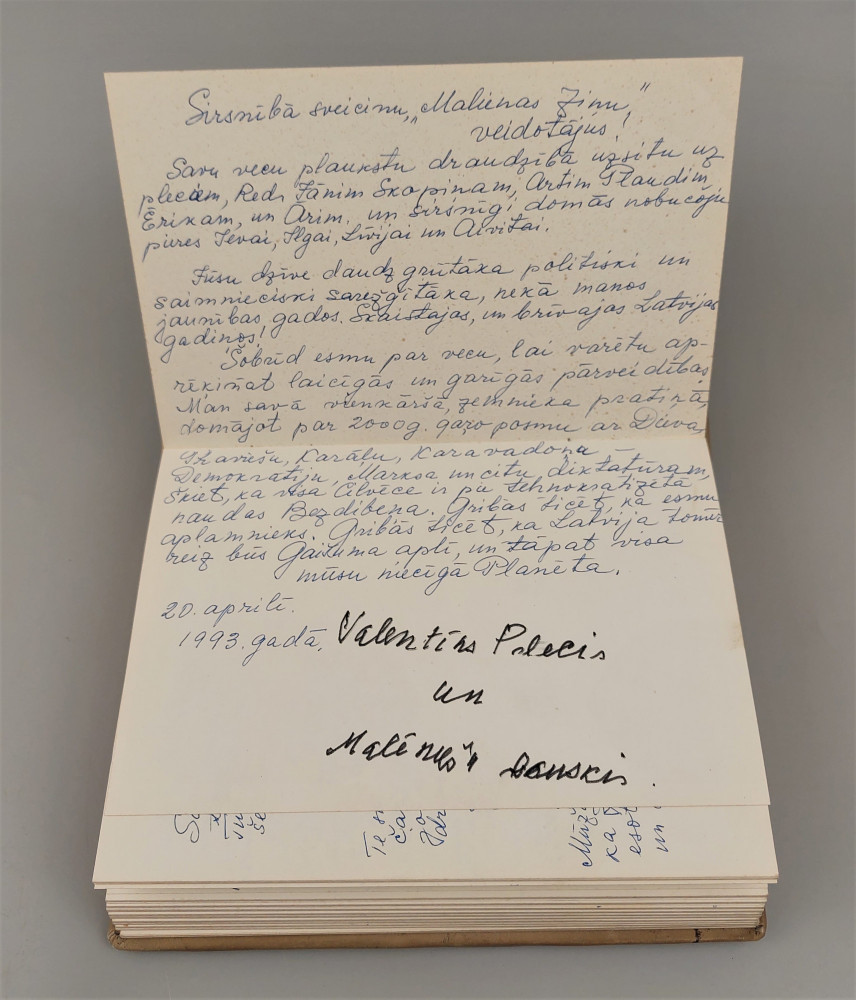 Sirsnībā sveicinu, "Malienas Ziņu,"
veidotājus!
Savu vecu plaukstu draudzībā uzsitu uz
pleciem, Red. Jānim Skopinam, Artim
Ērikam, un Arim. un sirsnīgi domās nobučoju
pures Ievai, Ilgai, Līvijai un Aivitai.
Jūsu dzīve daudz grūtāka politiski un
saimnieciski sarežģītāka, nekā manos
jaunības gados. Skaistajos, un brīvajos Latvijas
gadiņos!
Šobrīd esmu par vecu, lai varētu ap-
rēķināt laicīgās un garīgās pārveidības
Man savā vienkāršā, zemnieka pratiņā,
domājot par 2000g. gaŗo posmu ar Dieva,
Ķaraļu, Karavadoņu –
Demokrātiju, Marksa un citu diktatūram,
šķiet, ka visa Cilvēce ir pie tehnokratizētā
naudas Bezdibeņa. Gribas ticēt, ka esmu
aplamnieks. Gribas ticēt, ka Latvija tomēr
reiz būs Gaišuma aplī, un tāpat visa
mūsu niecīgā Planēta.
20. aprīlī.
1993. gadā, Valentīns Plecis
un
Malēnks" Danskis.
Te
ča
Mūž
ka
esot
un